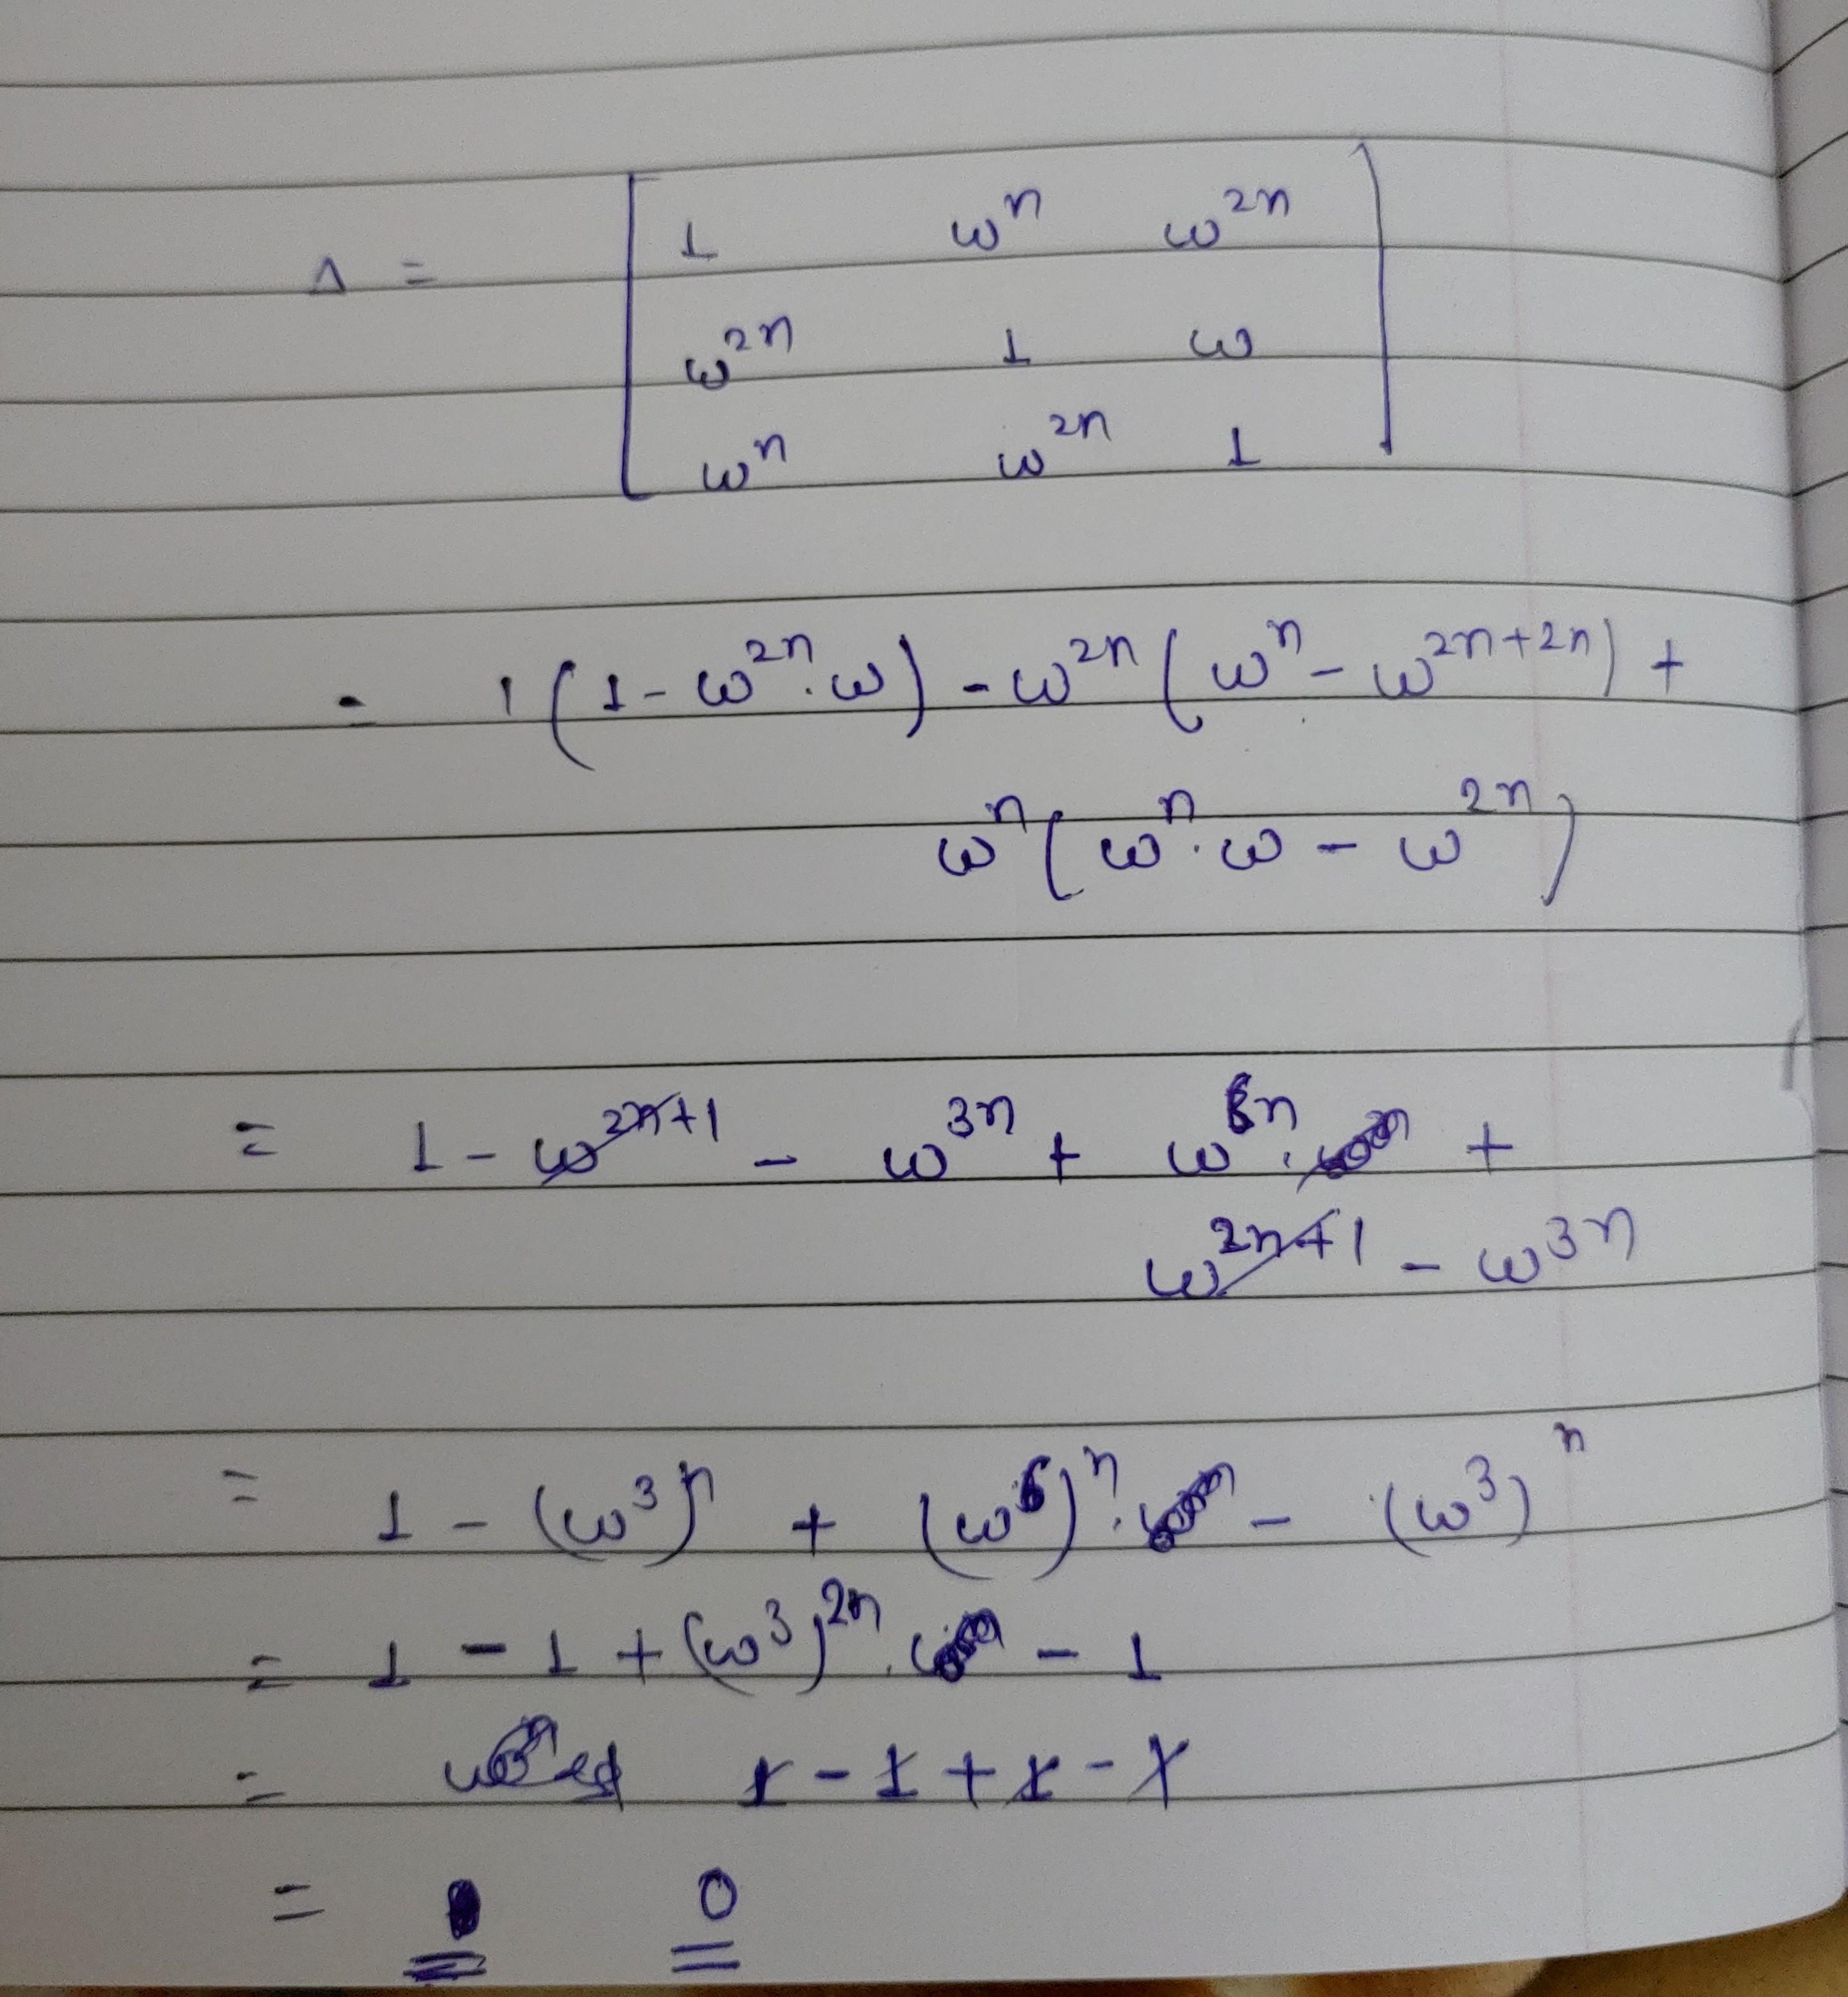 Δ = | 1 ωⁿ ω²ⁿ |
| ω²ⁿ 1 ω |
| ωⁿ ω²ⁿ 1 |
= 1(1 - ω²ⁿ.ω) - ω²ⁿ(ωⁿ - ω²ⁿ⁺²ⁿ) +
ωⁿ(ωⁿ.ω - ω²ⁿ)
= 1 - ω²ⁿ⁺¹ - ω³ⁿ + ω⁶ⁿ. +
ω²ⁿ⁺¹ - ω³ⁿ
= 1 - (ω³)ⁿ + (ω⁶)ⁿ. - (ω³)ⁿ
= 1 - 1 + (ω³)²ⁿ. - 1
= 1 - 1 + 1 - 1
= 0